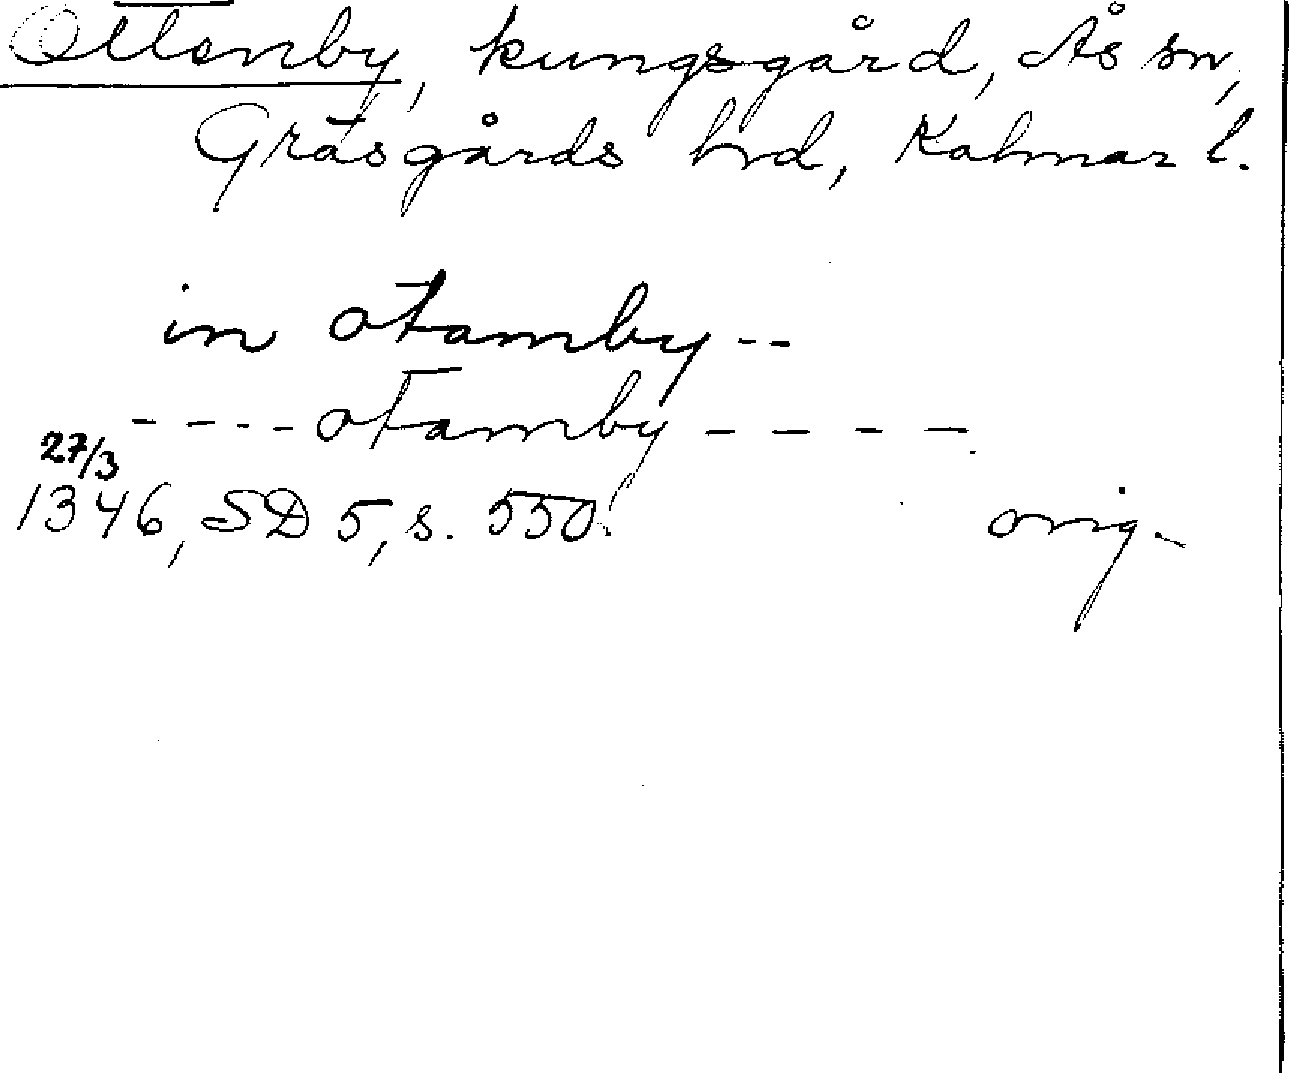 Ottenby, kungsgård, Ås sn,
Gräsgårds hrd, Kalmar l.
in otamby--
----otamby----
27/3
1346, SD 5, s. 550.
orig.